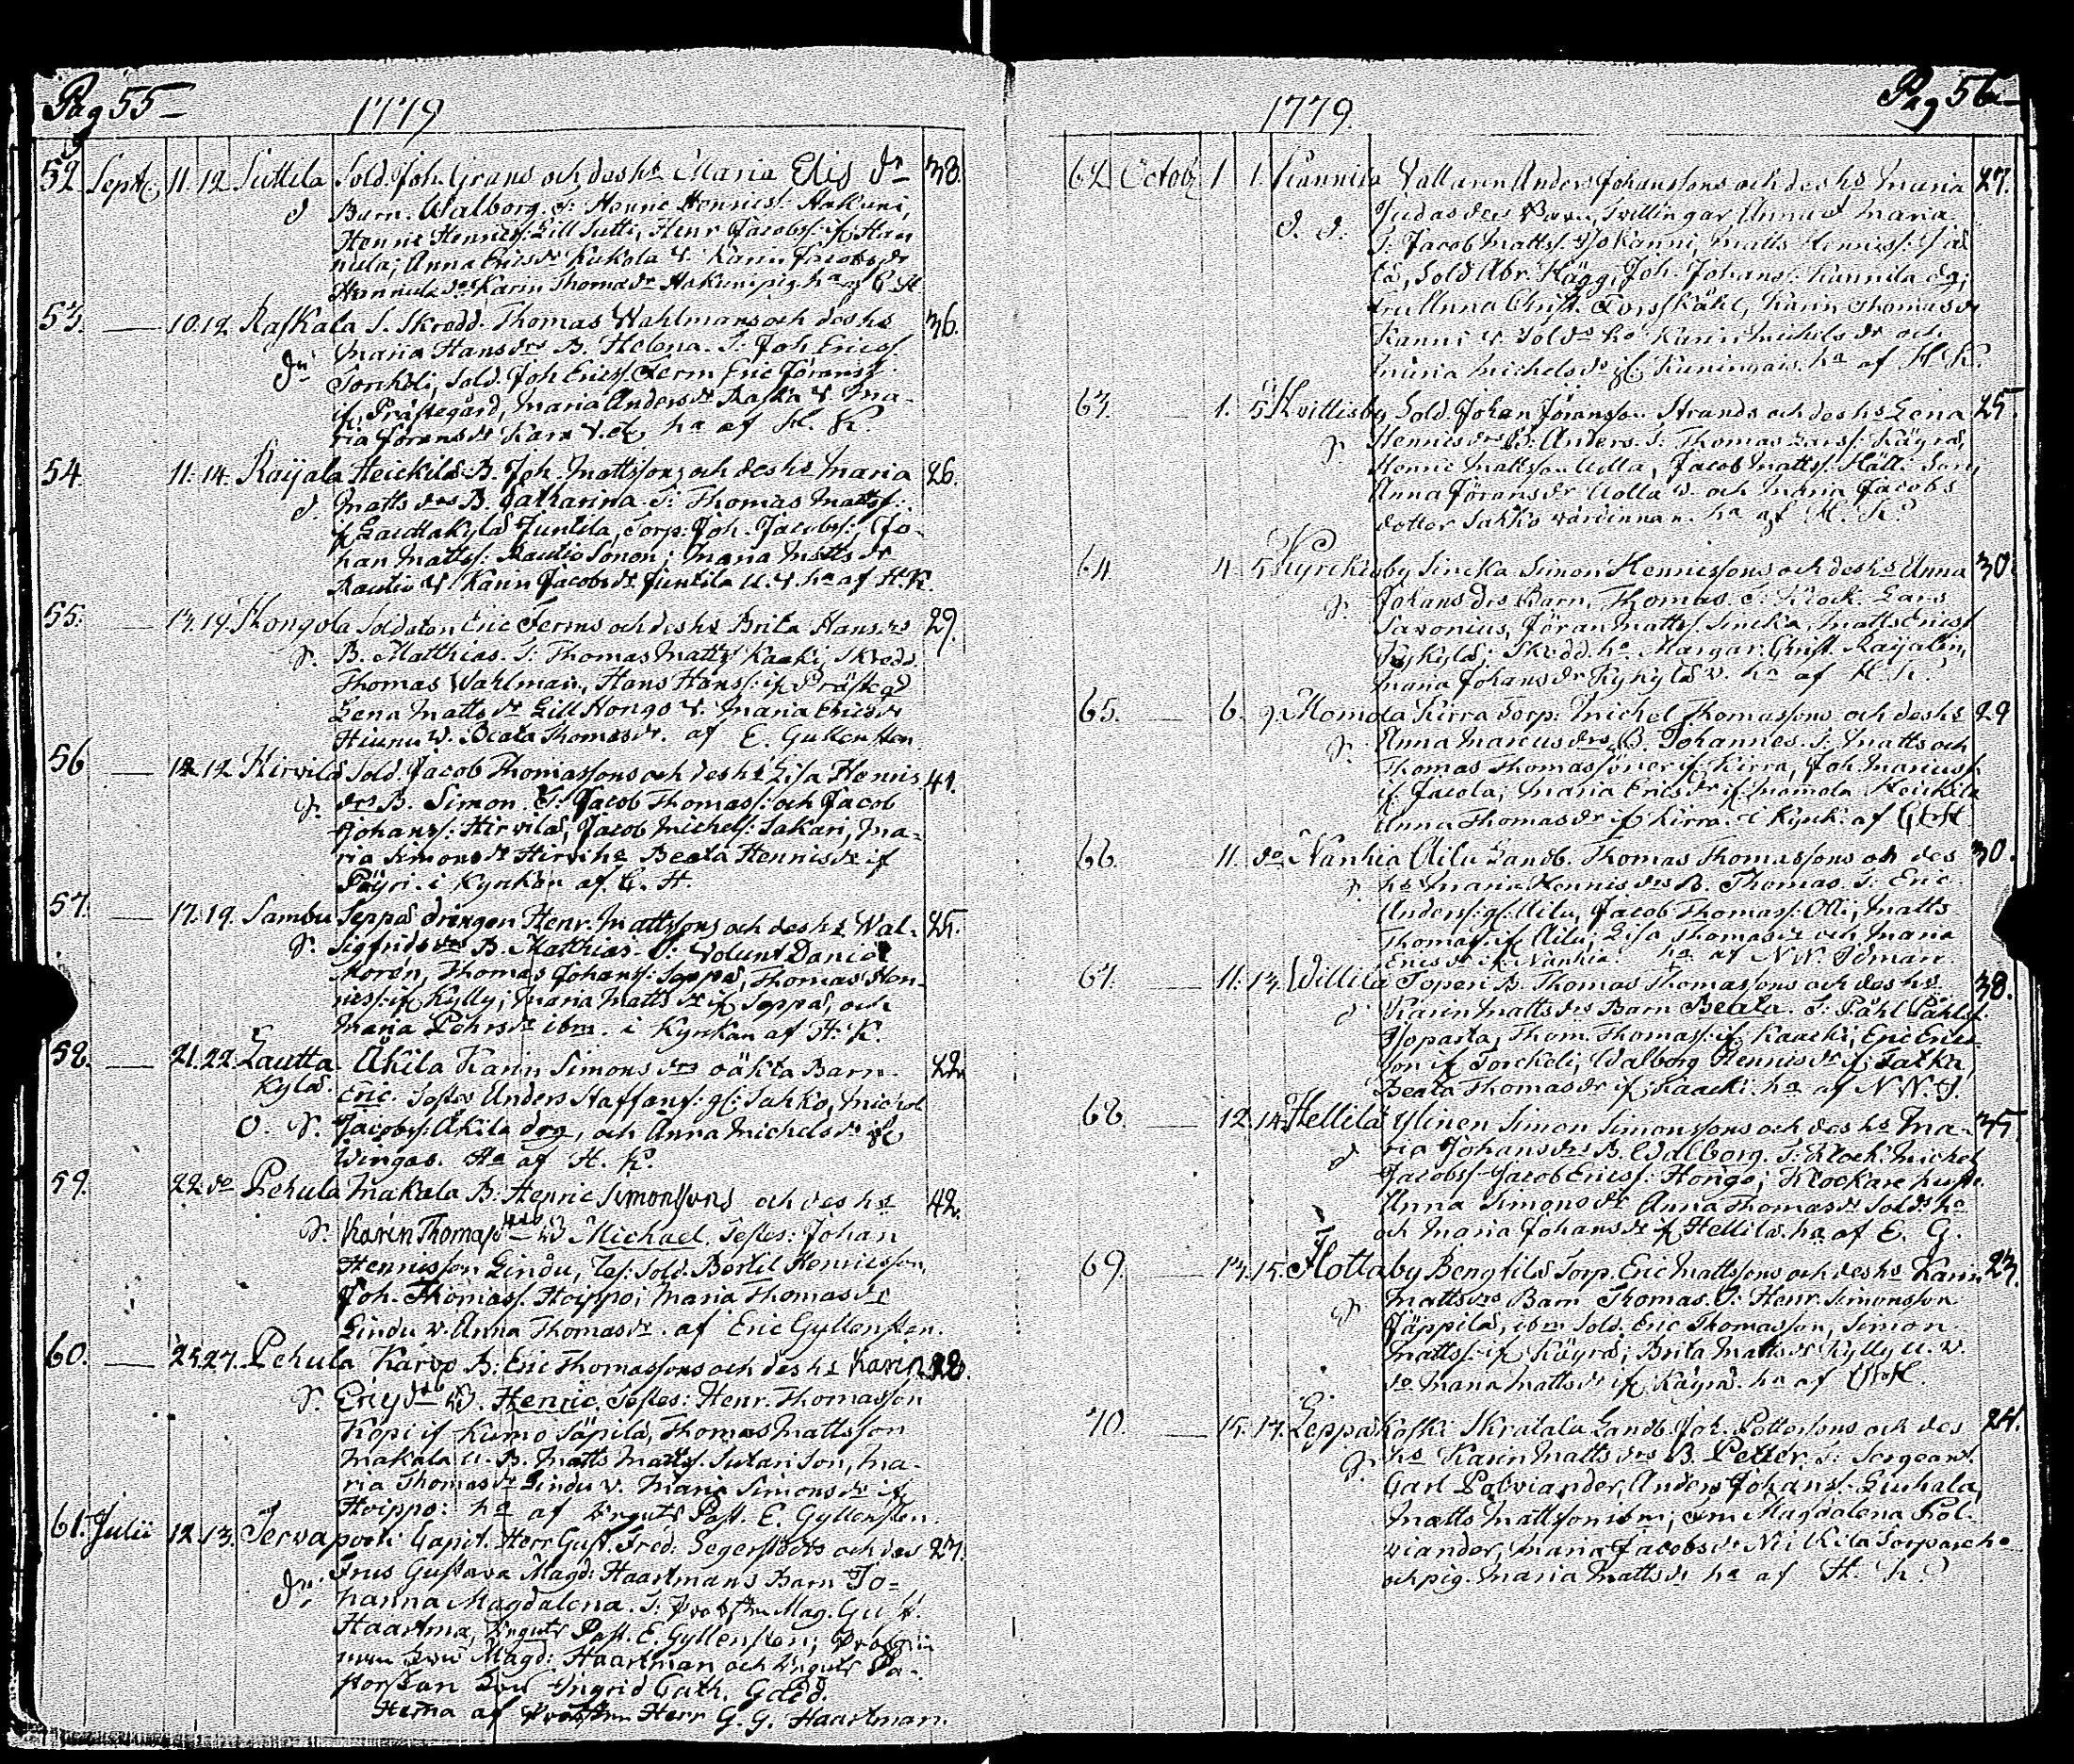 Pag 55
1779
52 Sept. 11. 12 Suttila Sold. Joh. Grans och des h. Maria Elis dr 38.
d Barn. Walborg. T: Henric Hennes: Hakuni,
Henric Hennes: Lill Sutti, Henr Jacobs: if Han
nula; Anna Ericsdr Kukola v. Karin Jacobsdr
Hannula do Karin Thomasdr Hakuni pig. ha af C H
53. — 10. 12 Raskala S. Skrädd. Thomas Wahlmans och des h. 36.
Maria Hansdrs B. Helena. T: Joh Erics.
dr Torckeli, Sold. Joh Erics. Ferm Eric Jörans.
if Prästegård, Maria Andersdr Raska v. Ma-
ria Joransdr Kara v. ha af H. K.
54 11. 14. Raijala Heickilä B. Joh. Mattssons och des h. Maria 26.
d. Mattsdrs B. Catharina. T: Thomas Matts.
if Lauttakylä Juntila, Torp. Joh. Jacobs: Jo-
han Matts: Rautio Sonen; Maria Mattsdr
Rautio v. Karin Jacobsdr Juntila u. v. ha af H. K.
55. — 13. 14. Hongola Soldaten Eric Ferms och des h. Brita Hansdrs 29.
S. B. Matthias. T: Thomas Matts. Kaaki, Skrädd.
Thomas Wahlman, Hans Hans: if Prästegd
Lena Mattsdr Lill Hongo v. Maria Ericsdr
Hiunu v. Beata Thomasdr. af E. Gullensten.
56 — 12 12 Hirvilä Sold. Jacob Thomassons och des h. Lisa Hennis 41.
S. drs B. Simon. T: Jacob Thomas: och Jacob
Johans: Hirvilä, Jacob Michels: Sakari, Ma-
ria Simonsdr Hirvi h. Beata Hennisdr if
Päijri. i Kyrckan af C. H.
57. — 17. 19. Sambu Seppä drängen Henr. Mattssons och des h. Wal. 25.
S. Sigfridsdrs B. Matthias. T: Volunt Daniel
Morén, Thomas Johans: Seppä, Thomas Hen-
rics: if Kylly; Maria Mattsdr if Seppä, och
Maria Pehrsdr ibm. i Kyrckan af H. K.
58. — 21. 22. Lautta Åkila Karin Simonsdrs oäkta Barn 22
Kylä. Eric. Testes Anders Staffans: gl: Sahko, Michel
O. S. Jacobs: Åkila drg, och Anna Michelsdr if
Wingas. Ha af H. K.
59. 22. do Pehula Makala B. Henric Simonssons och des h. 42.
S. Karin Thomasdrs B Michael. Testes: Johan
Hennisson Lindu, Sold. Bertil Henricsson,
Joh. Thomas. Hoippo; Maria Thomasdr
Lindu v. Anna Thomasdr. af Eric Gyllensten.
60. — 25. 27. Pehula Karvo B. Eric Thomassons och des h. Karin 28.
S. Ericsdrs B. Henric. Testes: Henr. Thomasson
Kopi if Kumo Säpilä, Thomas Mattsson
Makala u. B. Matts Matts. Sutari Son, Ma-
ria Thomasdr Lindu v. Maria Simonsdr if
Hoippo: ha af Past. E. Gyllensten.
61. Julii 12 13. Tervapooli Capit. Herr Gust. Fred. Segerstedts och des 27.
Frus Gustava Magd: Haartmans Barn Jo-
dr hanna Magdalena. T: Mag. Gust.
Haartma, Past. E. Gyllensten;
Magd: Haartman och Pa-
storskan Ingrid Cath. Gadd.
Hema af Herr G. G. Haartman.
Pag 56
1779.
62 Octob 1 1. Kannila Vallaren Anders Johanssons och des h. Maria 27.
d. d. Judasdrs Barn, Tvillingar Anna o Maria
T: Jacob Matts. Kanni, Matts Hennis:
Sold. Abr. Hägg, Joh. Johans: Kannila dg;
fru Anna Christ. Forsskåhl, Karin Thomasdr
Kanni v. Sold. h. Karin Michelsdr och
Maria Michelsdr if Kuningais. ha af H. K.
63. — 1. 5 Hvittisby Sold. Johan Jöransson Strands och des h. Lena 25
S. Hennisdrs B. Anders. T: Thomas Lars: Käyrä,
Henric Mattsson Uolla, Jacob Matts. Hätti Son;
Anna Jöransdr Uolla v. och Maria Jacobs
dotter Sahko värdinnan. ha af H. K.
64 4. 5 Kyrckioby Sincka Simon Hennissons och des h. Anna 30.
S. Johansdrs Barn, Thomas. T: Klock. Lars
Savonius, Jöran Matts. Sincka, Matts Erics.
Kykylä; Skrädd. h. Margar. Christ. Raijalin,
Maria Johansdr Kykylä v. ha af H. K.
65. — 6. 9. Mamola Kirra Torp. Michel Thomassons och des h. 29
S. Anna Marcusdrs B. Johannes. T: Matts och
Thomas Thomassöner if Kirra, Joh. Marcus:
if Jacola; Maria Ericsdr if Mamola Heickilä
Anna Thomasdr if Kirra. i Kyrck. af
66. 11. do Nanhia Ailu Landb. Thomas Thomassons och des 30.
S h. Maria Hennisdrs B. Thomas. T: Eric
Anders: gl: Ailu, Jacob Thomas: Olli, Matts
Thomas: if Ailu; Lisa Thomasdr och Maria
Ericsdr if Nanhia. ha af N. N. Idman.
67. — 11. 13. Willila Toperi B. Thomas Thomassons och des h. 38.
d Karin Mattsdrs Barn Beata. T: Påhl Påhls:
Isoparta, Thom. Thomas: if Kaacki, Eric Erics-
son if Torckeli; Walborg Hennisdr if Talka,
Beata Thomasdr if Kaacki. ha af N. N. I.
68. — 12. 14. Hellilä Ylinen Simon Simonssons och des h. Ma- 35.
d ria Johansdrs B. Walborg. T: Klock. Michel
Jacobs: Jacob Erics: Hongo; Klockare hustr.
Anna Simonsdr Anna Thomasdr Solds h.
och Maria Johansdr if Hellilä. ha af E. G.
69. — 13. 15. Flottaby Bengtilä Torp. Eric Mattssons och des h. Karin 23.
S Mattsdrs Barn Thomas. T: Henr. Simonsson
Jäppilä, ibm Sold. Eric Thomasson, Simon
Matts: if Käyrä; Brita Mattsdr Kylly u. v.
do Maria Mattsdr if Käyrä. ha af
70. — 15. 17. Leppäkoski Skratala Landb. Joh. Pettersons och des 24.
S. h. Karin Mattsdrs B. Petter. T: Sergeant
Carl Polviander, Anders Johans: Liuhala,
Matts Mattsson ibm; fru Magdalena Pol-
viander, Maria Jacobsdr Torpare h.
och pig. Maria Mattsdr ha af H. K.